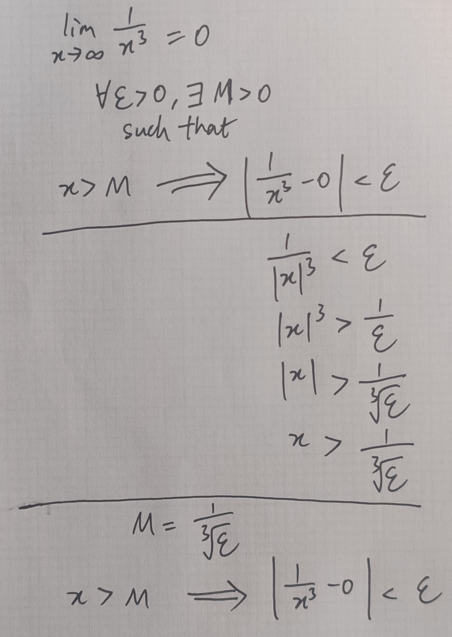 lim x→∞ 1/x³ = 0
∀ε>0, ∃M>0
such that
x > M ⟹ |1/x³ - 0| < ε
1/|x|³ < ε
|x|³ > 1/ε
|x| > 1/∛ε
x > 1/∛ε
M = 1/∛ε
x > M ⟹ |1/x³ - 0| < ε